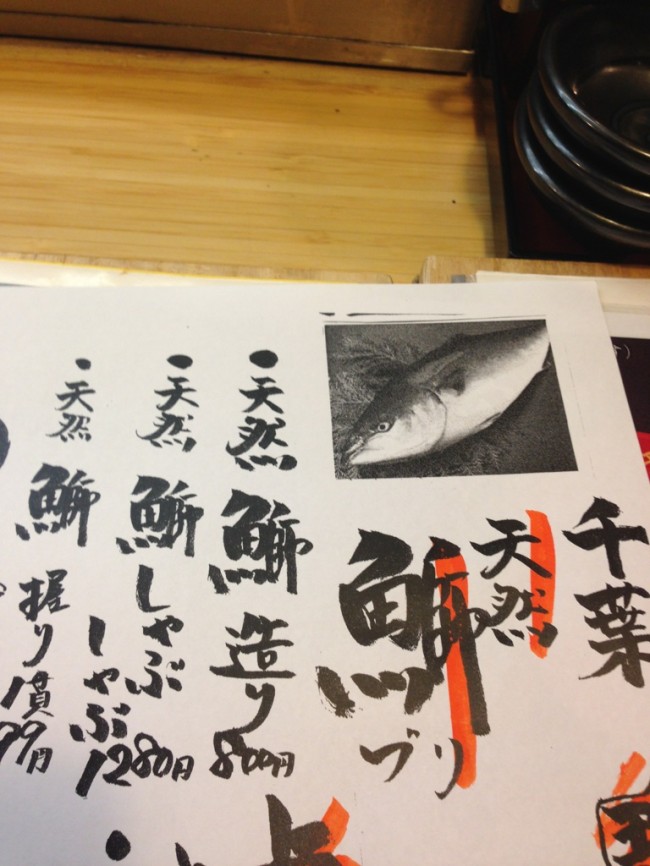 千葉
天然
鰤
ブリ
・天然 鰤 造り 800円
・天然 鰤 しゃぶしゃぶ 1280円
・天然 鰤 握り 1貫 99円